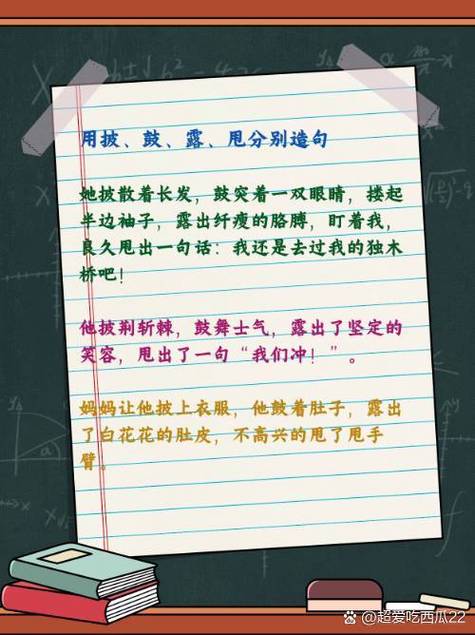 用披、鼓、露、甩分别造句
她披散着长发，鼓突着一双眼睛，搂起
半边袖子，露出纤瘦的胳膊，盯着我，
良久甩出一句话：我还是去过我的独木
桥吧！
他披荆斩棘，鼓舞士气，露出了坚定的
笑容，甩出了一句“我们冲！”。
妈妈让他披上衣服，他鼓着肚子，露出
了白花花的肚皮，不高兴的甩了甩手
臂。
@超爱吃西瓜22